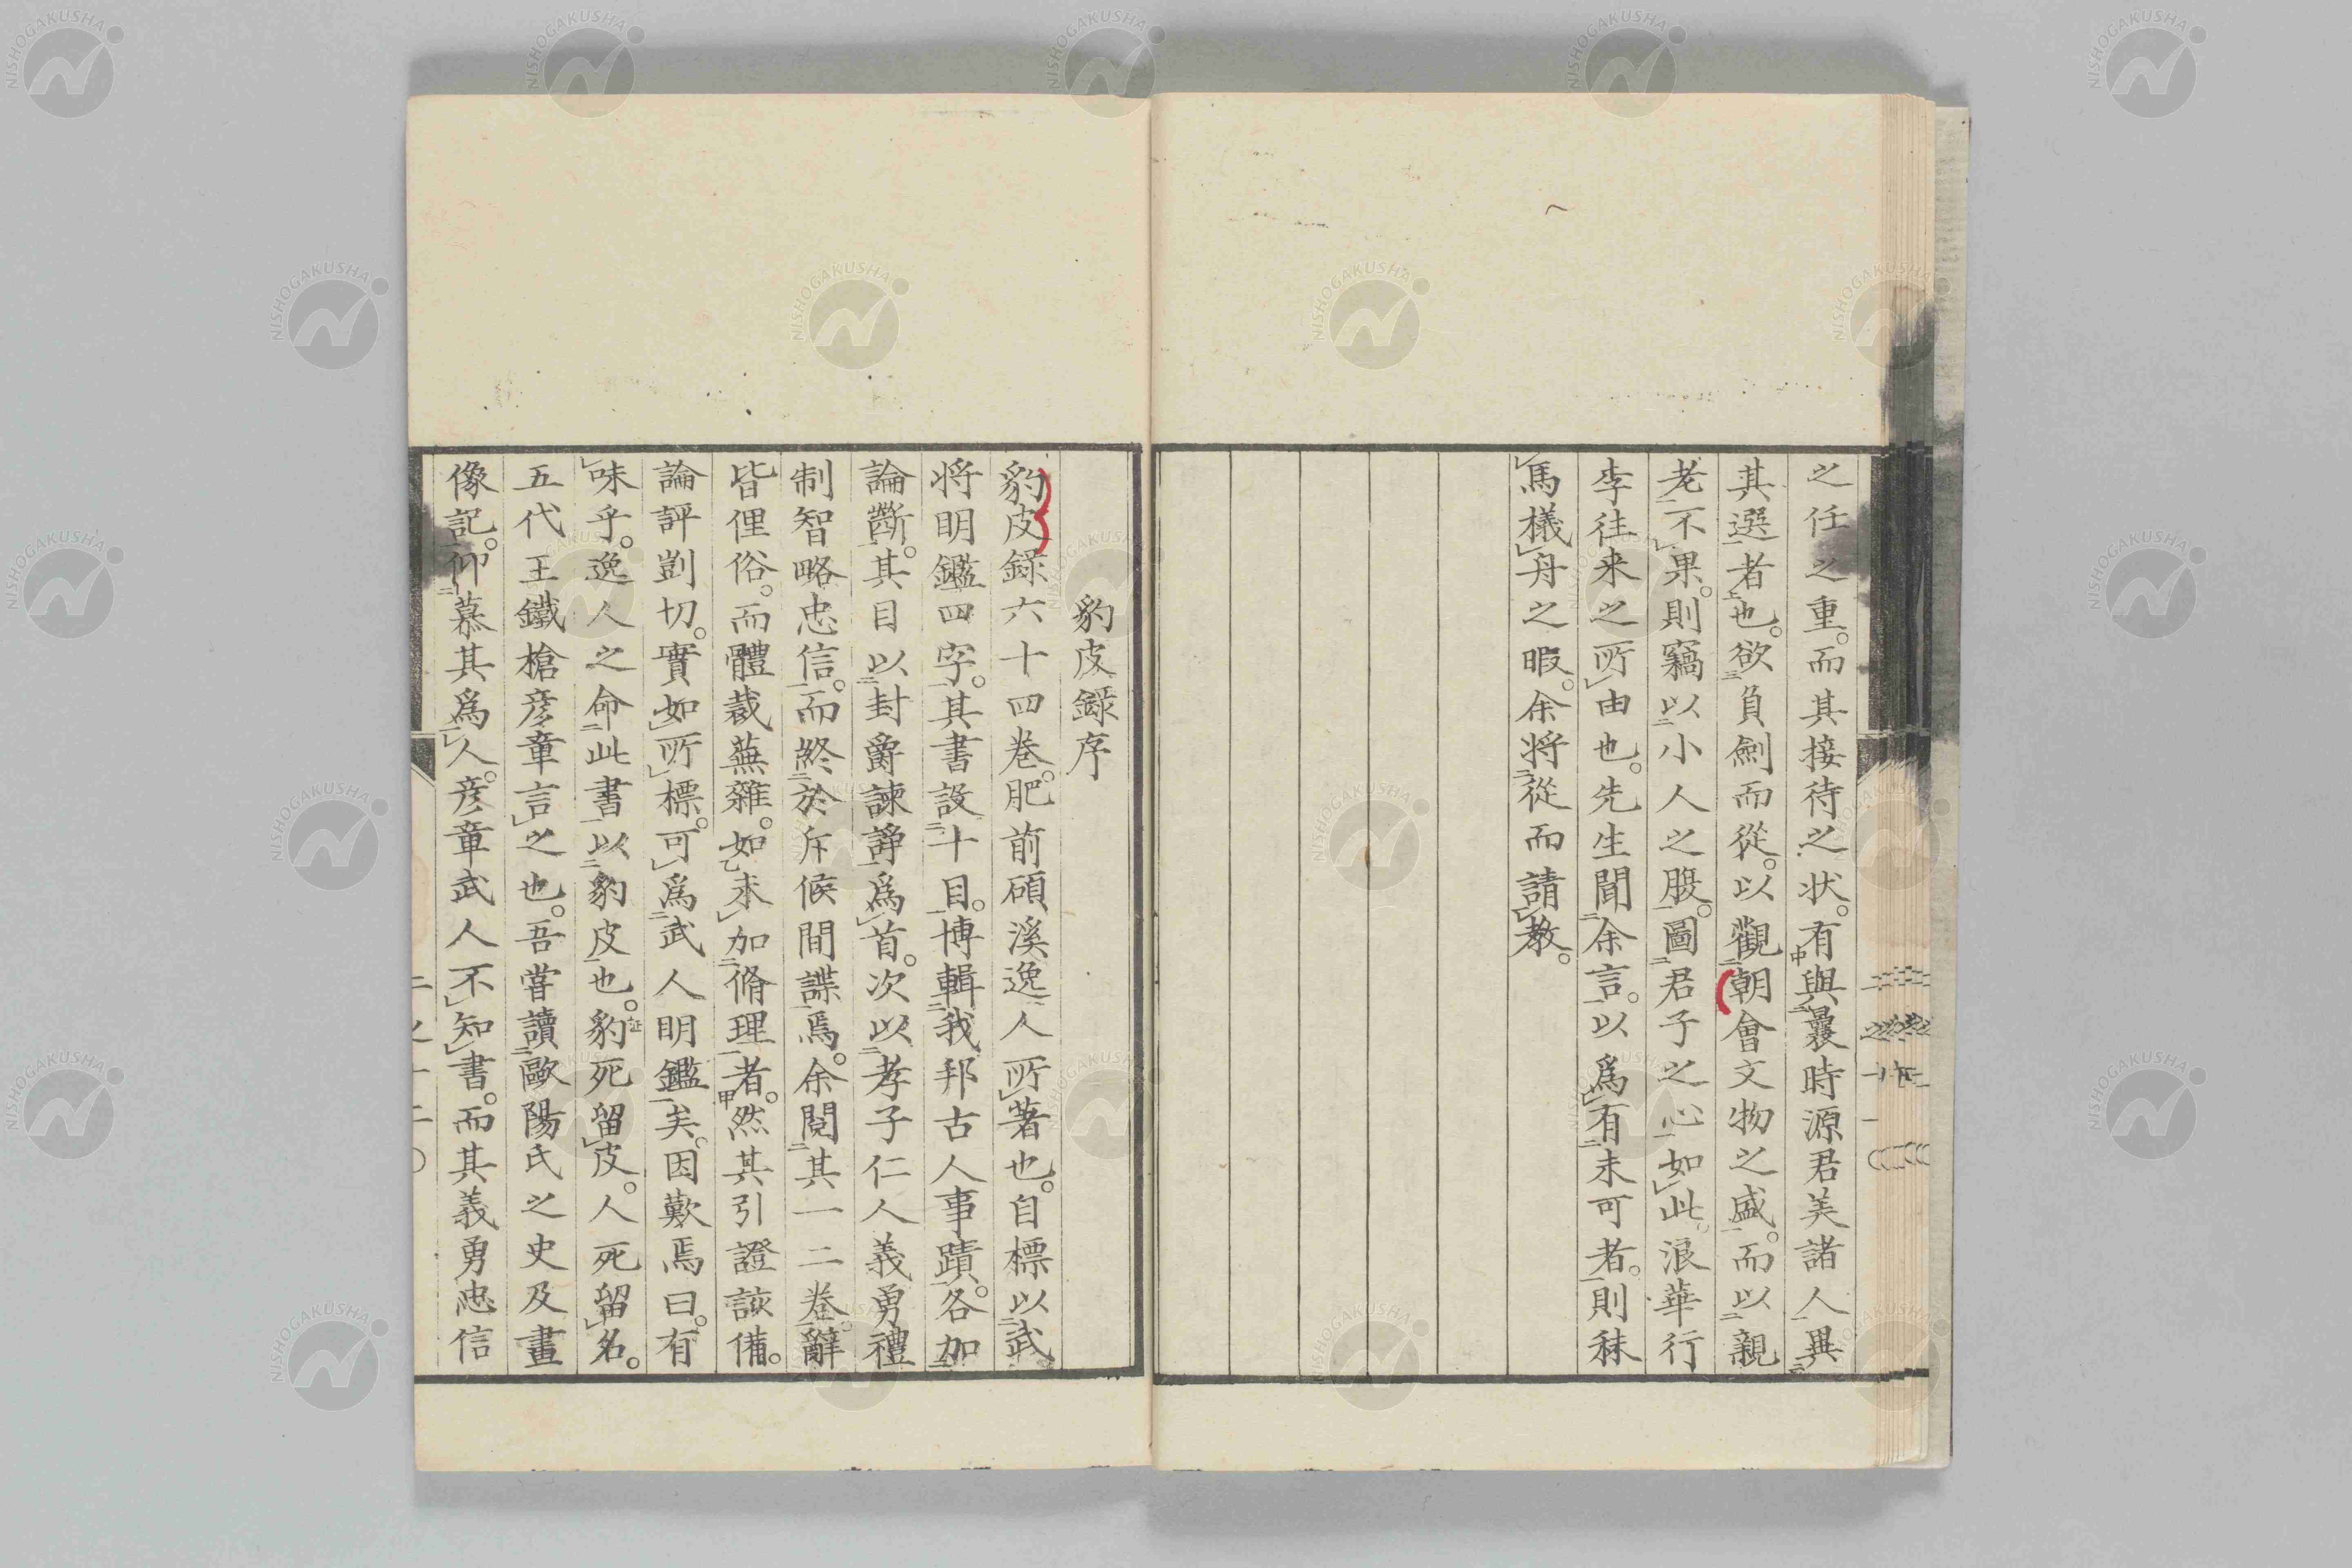 之任之重。而其接待之状。有與曩時源君美諸人異
其選者也。欲負劍而從。以觀朝會文物之盛。而以親
老不果。則竊以小人之腹。圖君子之心。如此。浪華行
李往来之所由也。先生聞余言。以爲有未可者。則秣
馬檥舟之暇。余将從而請教。
豹皮録序
豹皮録六十四卷。肥前碩溪逸人所著也。自標以武
将明鑑四字。其書設十目。博輯我邦古人事蹟。各加
論斷。其目以封爵諫諍爲首。次以孝子仁人義勇禮
制智略忠信。而終於斥候間諜焉。余閲其一二卷。辭
皆俚俗。而體裁蕪雜。如未加脩理者。然其引證該備。
論評剴切。實如所標。可爲武人明鑑矣。因歎焉曰。有
味乎。逸人之命此書以豹皮也。豹死留皮。人死留名。
五代王鐵槍彦章言之也。吾嘗讀歐陽氏之史及畫
像記。仰慕其爲人。彦章武人不知書。而其義勇忠信
NISHOGAKUSHA